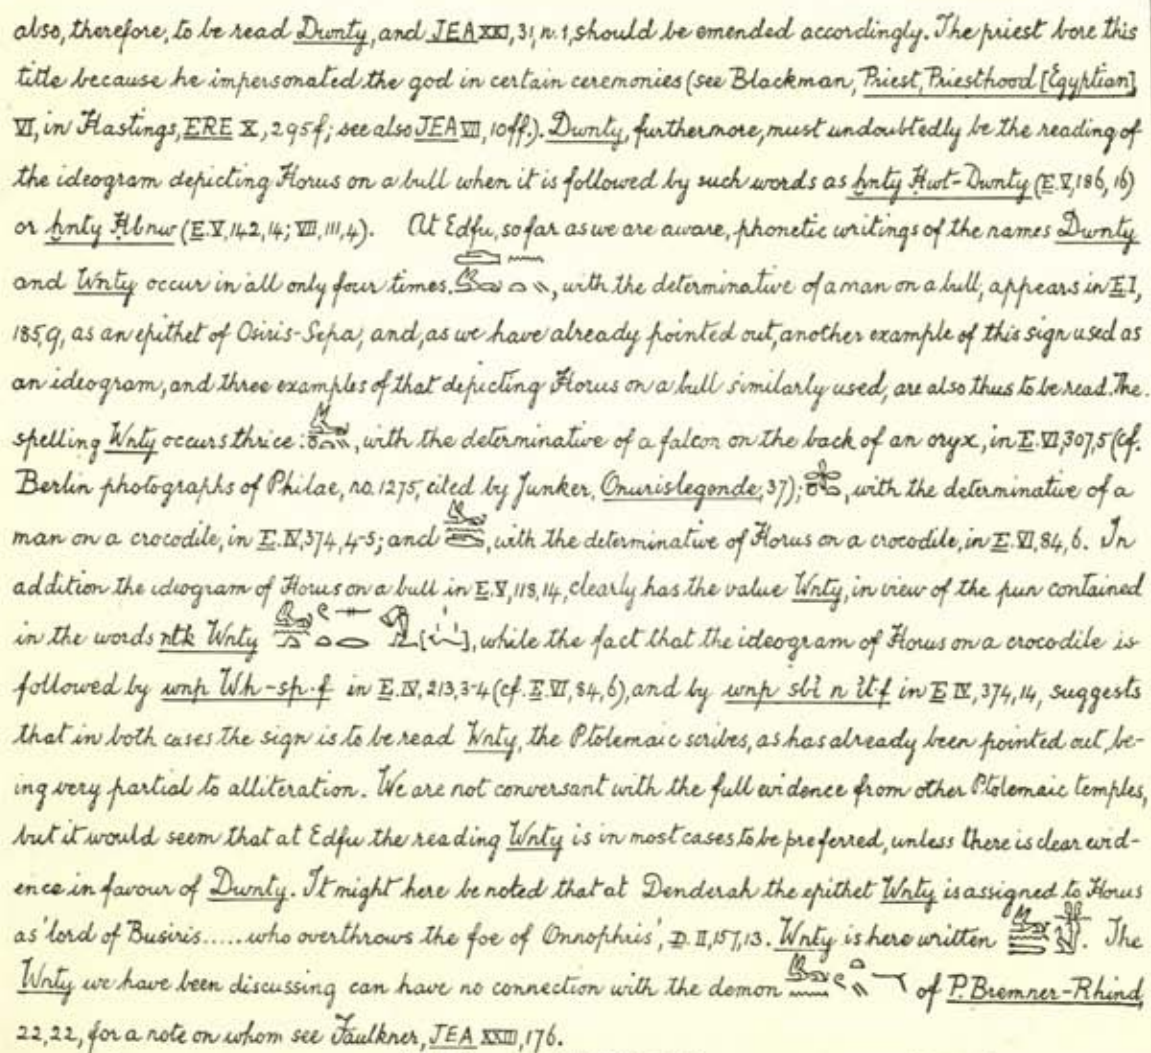 also, therefore, to be read Dwnty, and JEA XXI, 31, n. 1, should be emended accordingly. The priest bore this
title because he impersonated the god in certain ceremonies (see Blackman, Priest, Priesthood [Egyptian]
VI, in Hastings, ERE X, 295f; see also JEA VII, 10ff.). Dwnty, furthermore, must undoubtedly be the reading of
the ideogram depicting Horus on a bull when it is followed by such words as ḫnty Ḥwt-Dwnty (E. V, 186, 16)
or ḫnty Ḥbnw (E. V, 142, 14; VII, 111, 4). At Edfu, so far as we are aware, phonetic writings of the names Dwnty
and Wnty occur in all only four times. , with the determinative of a man on a bull, appears in E. I,
185, 9, as an epithet of Osiris-Sepa; and, as we have already pointed out, another example of this sign used as
an ideogram, and three examples of that depicting Horus on a bull similarly used, are also thus to be read. The
spelling Wnty occurs thrice: , with the determinative of a falcon on the back of an oryx, in E. VI, 307, 5 (cf.
Berlin photographs of Philae, no. 1275, cited by Junker, Onurislegende, 37); , with the determinative of a
man on a crocodile, in E. IV, 374, 4-5; and , with the determinative of Horus on a crocodile, in E. VI, 84, 6. In
addition the ideogram of Horus on a bull in E. V, 118, 14, clearly has the value Wnty, in view of the pun contained
in the words ntk Wnty , while the fact that the ideogram of Horus on a crocodile is
followed by wnp Wh-sp·f in E. IV, 213, 3-4 (cf. E. VI, 84, 6), and by wnp sbỉ n ỉt·f in E. IV, 374, 14, suggests
that in both cases the sign is to be read Wnty, the Ptolemaic scribes, as has already been pointed out, be-
ing very partial to alliteration. We are not conversant with the full evidence from other Ptolemaic temples,
but it would seem that at Edfu the reading Wnty is in most cases to be preferred, unless there is clear evid-
ence in favour of Dwnty. It might here be noted that at Denderah the epithet Wnty is assigned to Horus
as 'lord of Busiris.....who overthrows the foe of Onnophris', D. II, 157, 13. Wnty is here written . The
Wnty we have been discussing can have no connection with the demon of P. Bremner-Rhind,
22, 22, for a note on whom see Faulkner, JEA XXIII, 176.